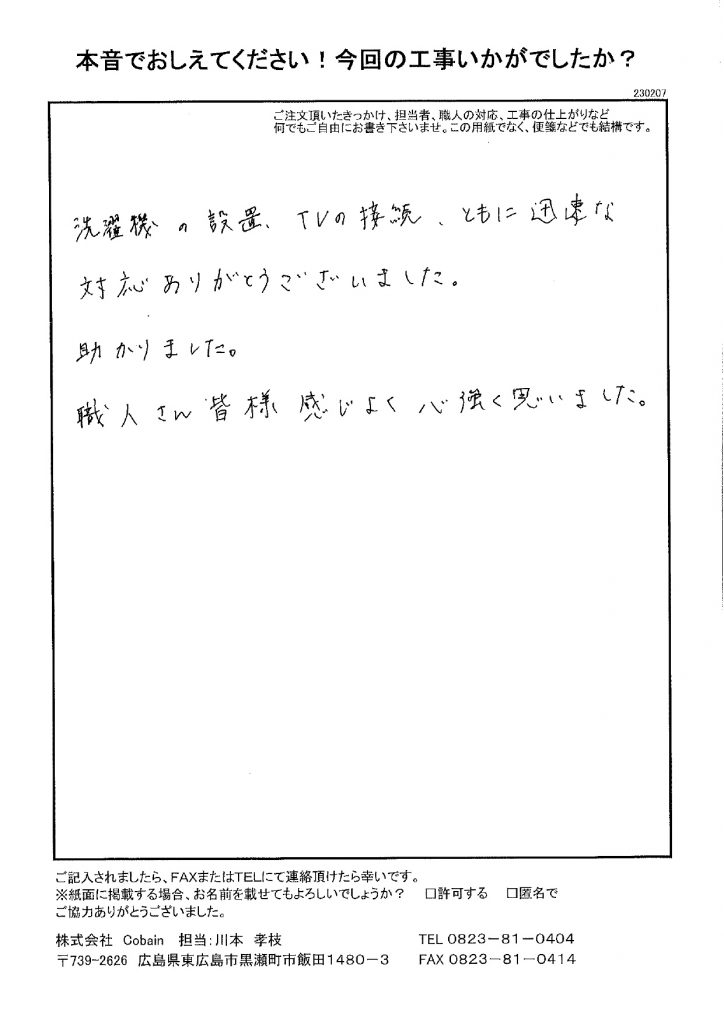 本音でおしえてください！今回の工事いかがでしたか？
230207
ご注文頂いたきっかけ、担当者、職人の対応、工事の仕上がりなど
何でもご自由にお書き下さいませ。この用紙でなく、便箋などでも結構です。
洗濯機の設置、TVの接続、ともに迅速な
対応ありがとうございました。
助かりました。
職人さん皆様感じよく心強く思いました。
ご記入されましたら、FAXまたはTELにて連絡頂けたら幸いです。
※紙面に掲載する場合、お名前を載せてもよろしいでしょうか？　□許可する　□匿名で
ご協力ありがとうございました。
株式会社 Cobain 担当:川本 孝枝　TEL 0823-81-0404
〒739-2626 広島県東広島市黒瀬町市飯田1480-3　FAX 0823-81-0414